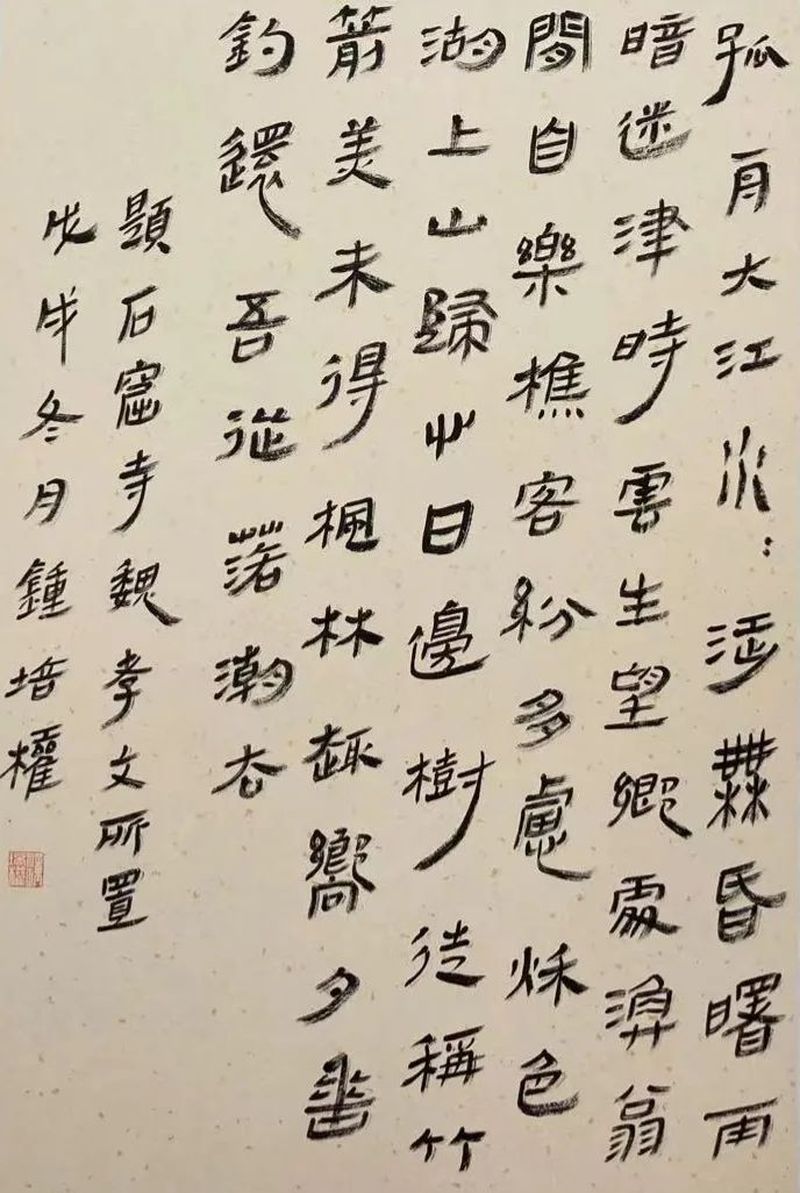 孤舟大江水:涉無昏曙雨
暗迷津時雲生望鄉處漁翁
閒自樂樵客紛多慮秌色
湖上山歸心日邊樹徒稱竹
箭美未得楓林趣嚮夕垂
釣還吾從落潮去
題石窟寺魏孝文所置
戊戌冬月鍾培權